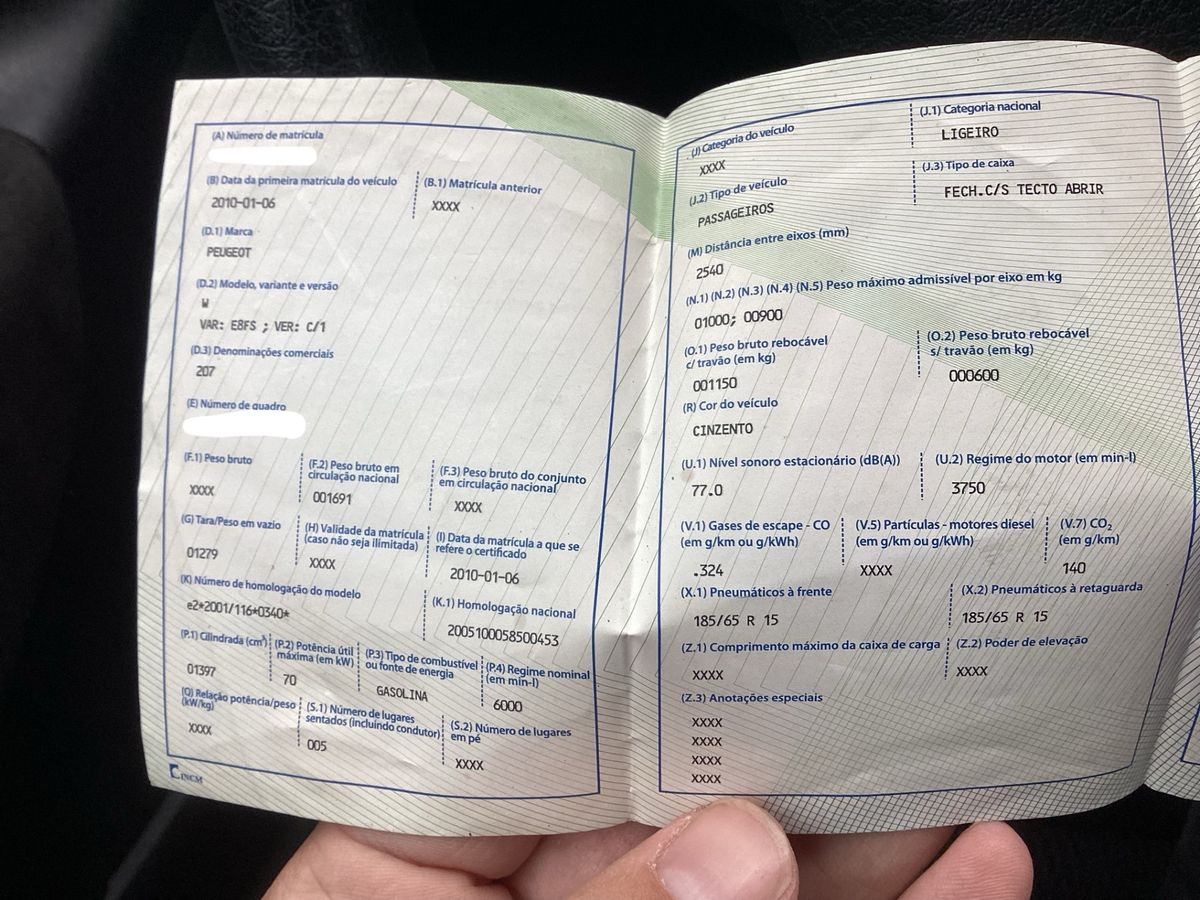 (A) Número de matrícula
(B) Data da primeira matrícula do veículo
2010-01-06
(B.1) Matrícula anterior
XXXX
(D.1) Marca
PEUGEOT
(D.2) Modelo, variante e versão
W
VAR: E8FS ; VER: C/1
(D.3) Denominações comerciais
207
(E) Número de quadro
(F.1) Peso bruto
XXXX
(F.2) Peso bruto em
circulação nacional
001691
(F.3) Peso bruto do conjunto
em circulação nacional
XXXX
(G) Tara/Peso em vazio
01279
(H) Validade da matrícula
(caso não seja ilimitada)
XXXX
(I) Data da matrícula a que se
refere o certificado
2010-01-06
(K) Número de homologação do modelo
e2*2001/116*0340*
(K.1) Homologação nacional
2005100058500453
(P.1) Cilindrada (cm³)
01397
(P.2) Potência útil
máxima (em kW)
70
(P.3) Tipo de combustível
ou fonte de energia
GASOLINA
(P.4) Regime nominal
(em min-l)
6000
(Q) Relação potência/peso
(kW/kg)
XXXX
(S.1) Número de lugares
sentados (incluindo condutor)
005
(S.2) Número de lugares
em pé
XXXX
INCM
(J) Categoria do veículo
XXXX
(J.1) Categoria nacional
LIGEIRO
(J.2) Tipo de veículo
PASSAGEIROS
(J.3) Tipo de caixa
FECH.C/S TECTO ABRIR
(M) Distância entre eixos (mm)
2540
(N.1) (N.2) (N.3) (N.4) (N.5) Peso máximo admissível por eixo em kg
01000; 00900
(O.1) Peso bruto rebocável
c/ travão (em kg)
001150
(O.2) Peso bruto rebocável
s/ travão (em kg)
000600
(R) Cor do veículo
CINZENTO
(U.1) Nível sonoro estacionário (dB(A))
77.0
(U.2) Regime do motor (em min-l)
3750
(V.1) Gases de escape - CO
(em g/km ou g/kWh)
.324
(V.5) Partículas - motores diesel
(em g/km ou g/kWh)
XXXX
(V.7) CO₂
(em g/km)
140
(X.1) Pneumáticos à frente
185/65 R 15
(X.2) Pneumáticos à retaguarda
185/65 R 15
(Z.1) Comprimento máximo da caixa de carga
XXXX
(Z.2) Poder de elevação
XXXX
(Z.3) Anotações especiais
XXXX
XXXX
XXXX
XXXX